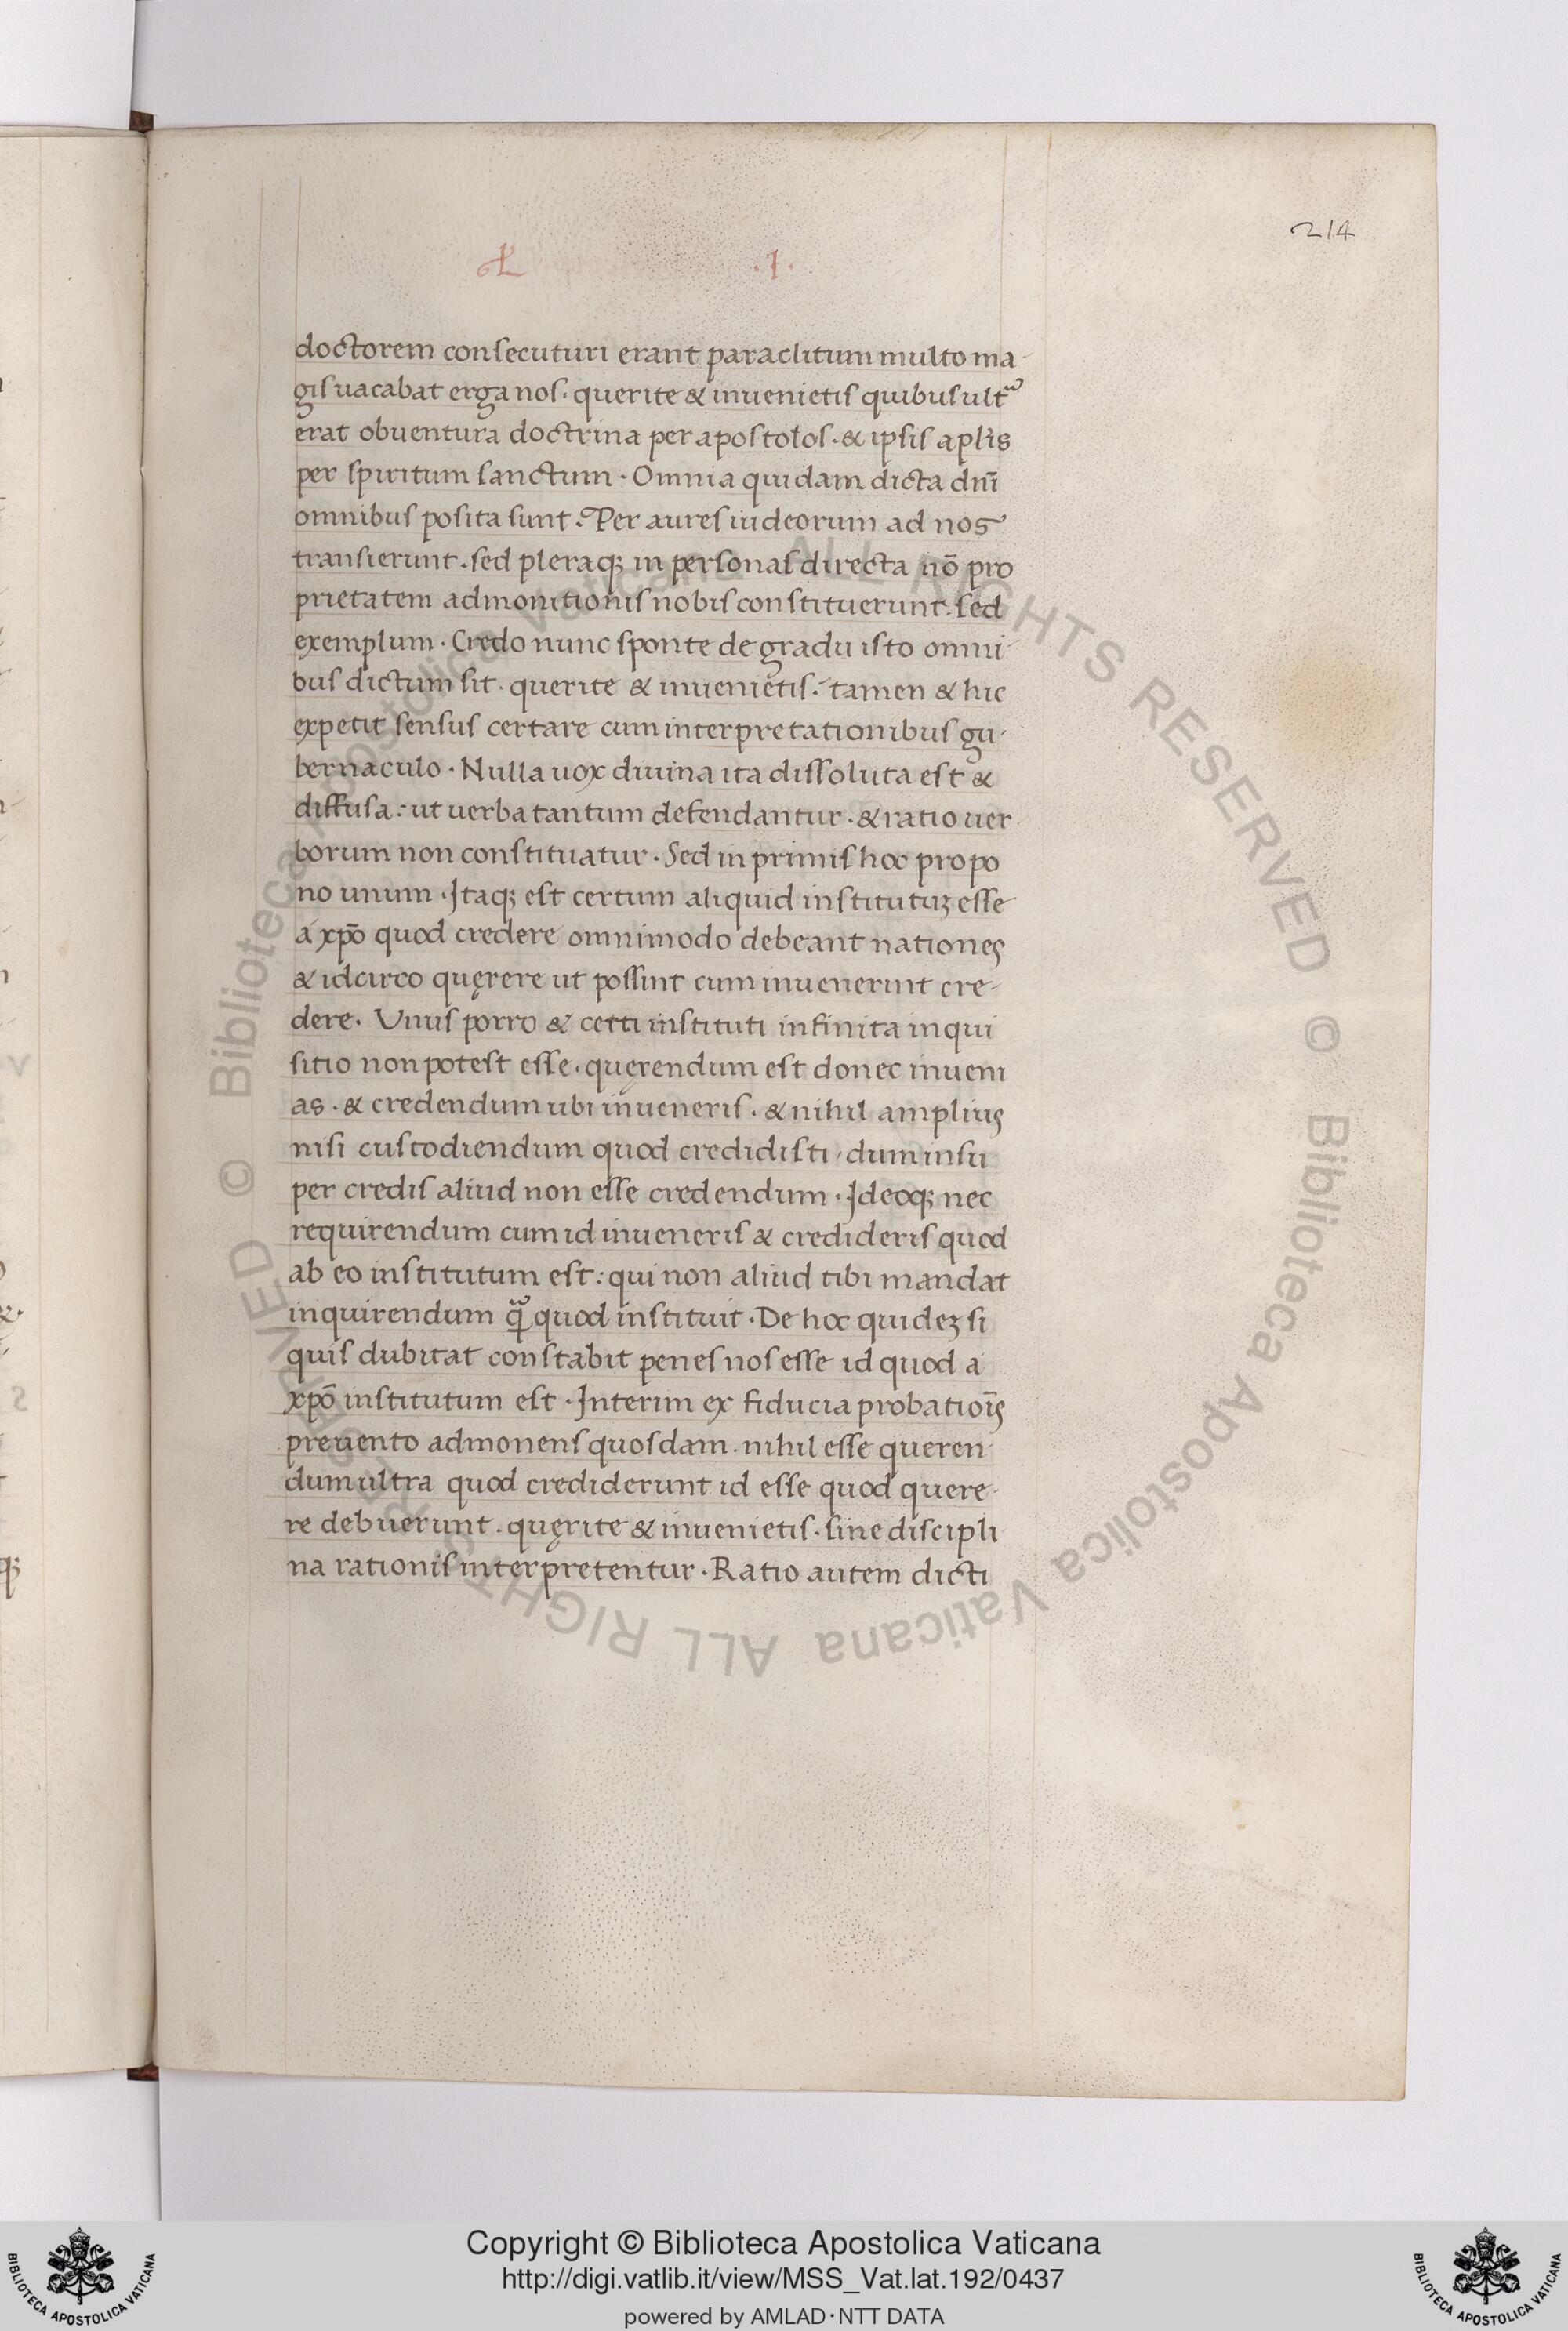 214
.I.
doctorem consecuturi erant paraclitum multo ma-
gis uacabat erga nos. querite & inuenietis quibus ult̃ᵃ
erat obuentura doctrina per apostolos. & ipsis aplis
per spiritum sanctum. Omnia quidam dicta dnī
omnibus posita sunt. Per aures iudeorum ad nos
transierunt. sed pleraqꝫ in personas directa nō pro
prietatem admonitionis nobis constituerunt. sed
exemplum. Credo nunc sponte de gradu isto omni-
bus dictum sit. querite & inuenietis. tamen & hic
expetit sensus certare cum interpretationibus gu-
bernaculo. Nulla uox diuina ita dissoluta est &
diffusa: ut uerba tantum defendantur. & ratio uer-
borum non constituatur. Sed in primis hoc propo
no unum. Itaqꝫ est certum aliquid institutuꝫ esse
á xpō quod credere omnimodo debeant nationes
& idcirco quęrere ut possint cum inuenerint cre-
dere. Unus porro & certi instituti infinita inqui
sitio non potest esse. quęrendum est donec inueni
as. & credendum ubi inueneris. & nihil amplius
nisi custodiendum quod credidisti, dum insu
per credis aliud non esse credendum. Ideoqꝫ nec
requirendum cum id inueneris & credideris quod
ab eo institutum est: qui non aliud tibi mandat
inquirendum qᵃ̃ quod instituit. De hoc quideꝫ si
quis dubitat constabit penes nos esse id quod a
xpō institutum est. Interim ex fiducia probatioīs
preuento admonens quosdam. nihil esse queren-
dum ultra quod crediderunt id esse quod quere-
re debuerunt. quęrite & inuenietis. sine discipli
na rationis interpretentur. Ratio autem dicti
© Biblioteca Apostolica Vaticana ALL RIGHTS RESERVED © Biblioteca Apostolica Vaticana ALL RIGHTS RESERVED
BIBLIOTECA APOSTOLICA VATICANA
Copyright © Biblioteca Apostolica Vaticana
http://digi.vatlib.it/view/MSS_Vat.lat.192/0437
powered by AMLAD·NTT DATA
BIBLIOTECA APOSTOLICA VATICANA